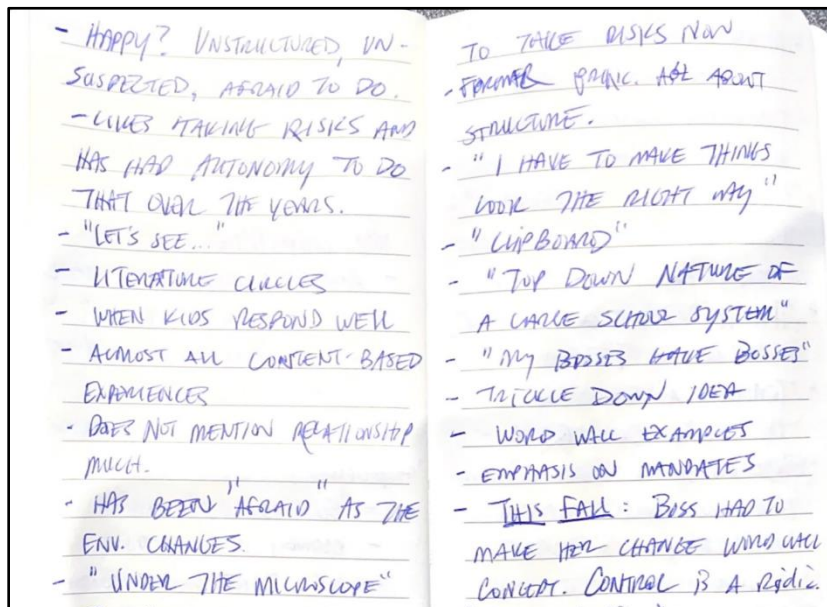 - HAPPY? UNSTRUCTURED, UN-
SUSPECTED, AFRAID TO DO.
- LIKES TAKING RISKS AND
HAS HAD AUTONOMY TO DO
THAT OVER THE YEARS.
- "LET'S SEE..."
- LITERATURE CIRCLES
- WHEN KIDS RESPOND WELL
- ALMOST ALL CONTENT-BASED
EXPERIENCES
- DOES NOT MENTION RELATIONSHIP
MUCH.
- HAS BEEN "AFRAID" AS THE
ENV. CHANGES.
- "UNDER THE MICROSCOPE"
TO TAKE RISKS NOW
- FORMER PRINC. ASK ABOUT
STRUCTURE.
- "I HAVE TO MAKE THINGS
LOOK THE RIGHT WAY"
- "CLIPBOARD"
- "TOP DOWN NATURE OF
A LARGE SCHOOL SYSTEM"
- "MY BOSSES HAVE BOSSES"
- TRICKLE DOWN IDEA
- WORD WALL EXAMPLES
- EMPHASIS ON MANDATES
- THIS FALL: BOSS HAD TO
MAKE HER CHANGE WORD WALL
CONCEPT. CONTROL IS A